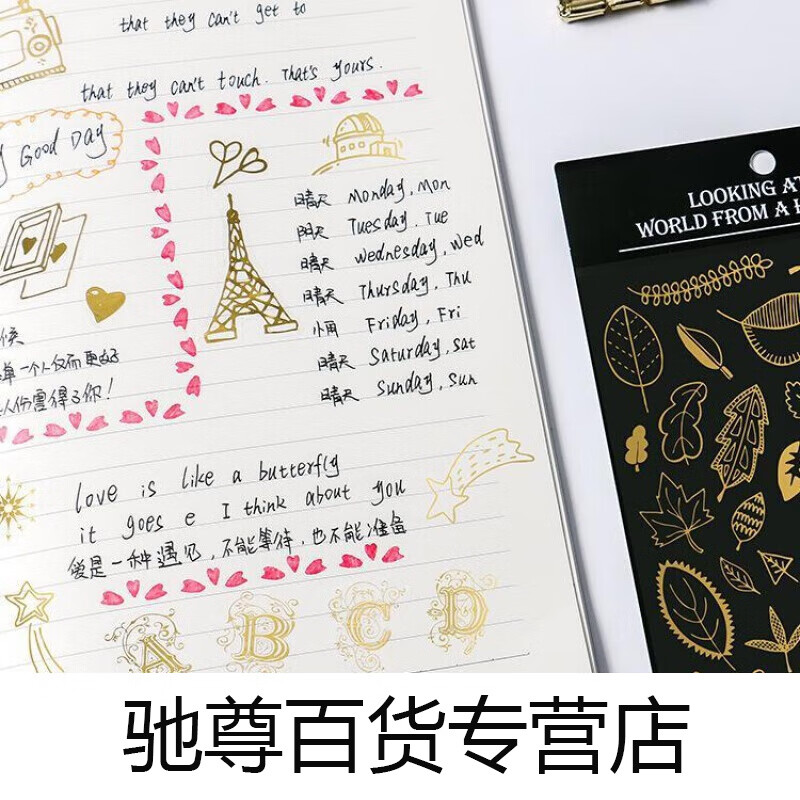 that they can't get to
that they can't touch. That's yours.
Good Day
晴天 Monday, Mon
阴天 Tuesday, Tue
晴天 Wednesday, Wed
晴天 Thursday, Thu
小雨 Friday, Fri
晴天 Saturday, Sat
晴天 Sunday, Sun
候
单一个人仅而更好
人伤害得了你！
love is like a butterfly
it goes e I think about you
爱是一种遇见，不能等待，也不能准备
A B C D
LOOKING AT
WORLD FROM A
驰尊百货专营店